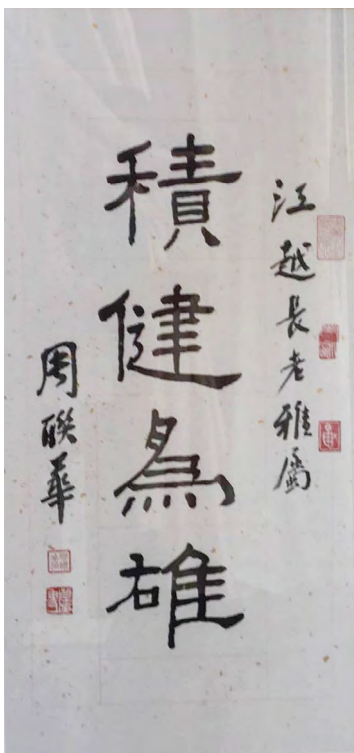 江越長老雅屬
積健為雄
周聯華